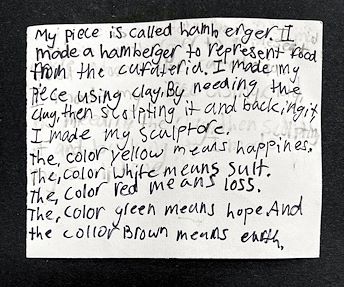 My piece is called hamb erger. I
made a hamberger to represent food
from the cafateria. I made my
piece using clay. By needing the
clay, then sculpting it and back,ing it,
I made my sculptore.
The, color yellow means happines.
The, color white means suit.
The, color red means loss.
The, color green means hope. And
the collor Brown means earth.